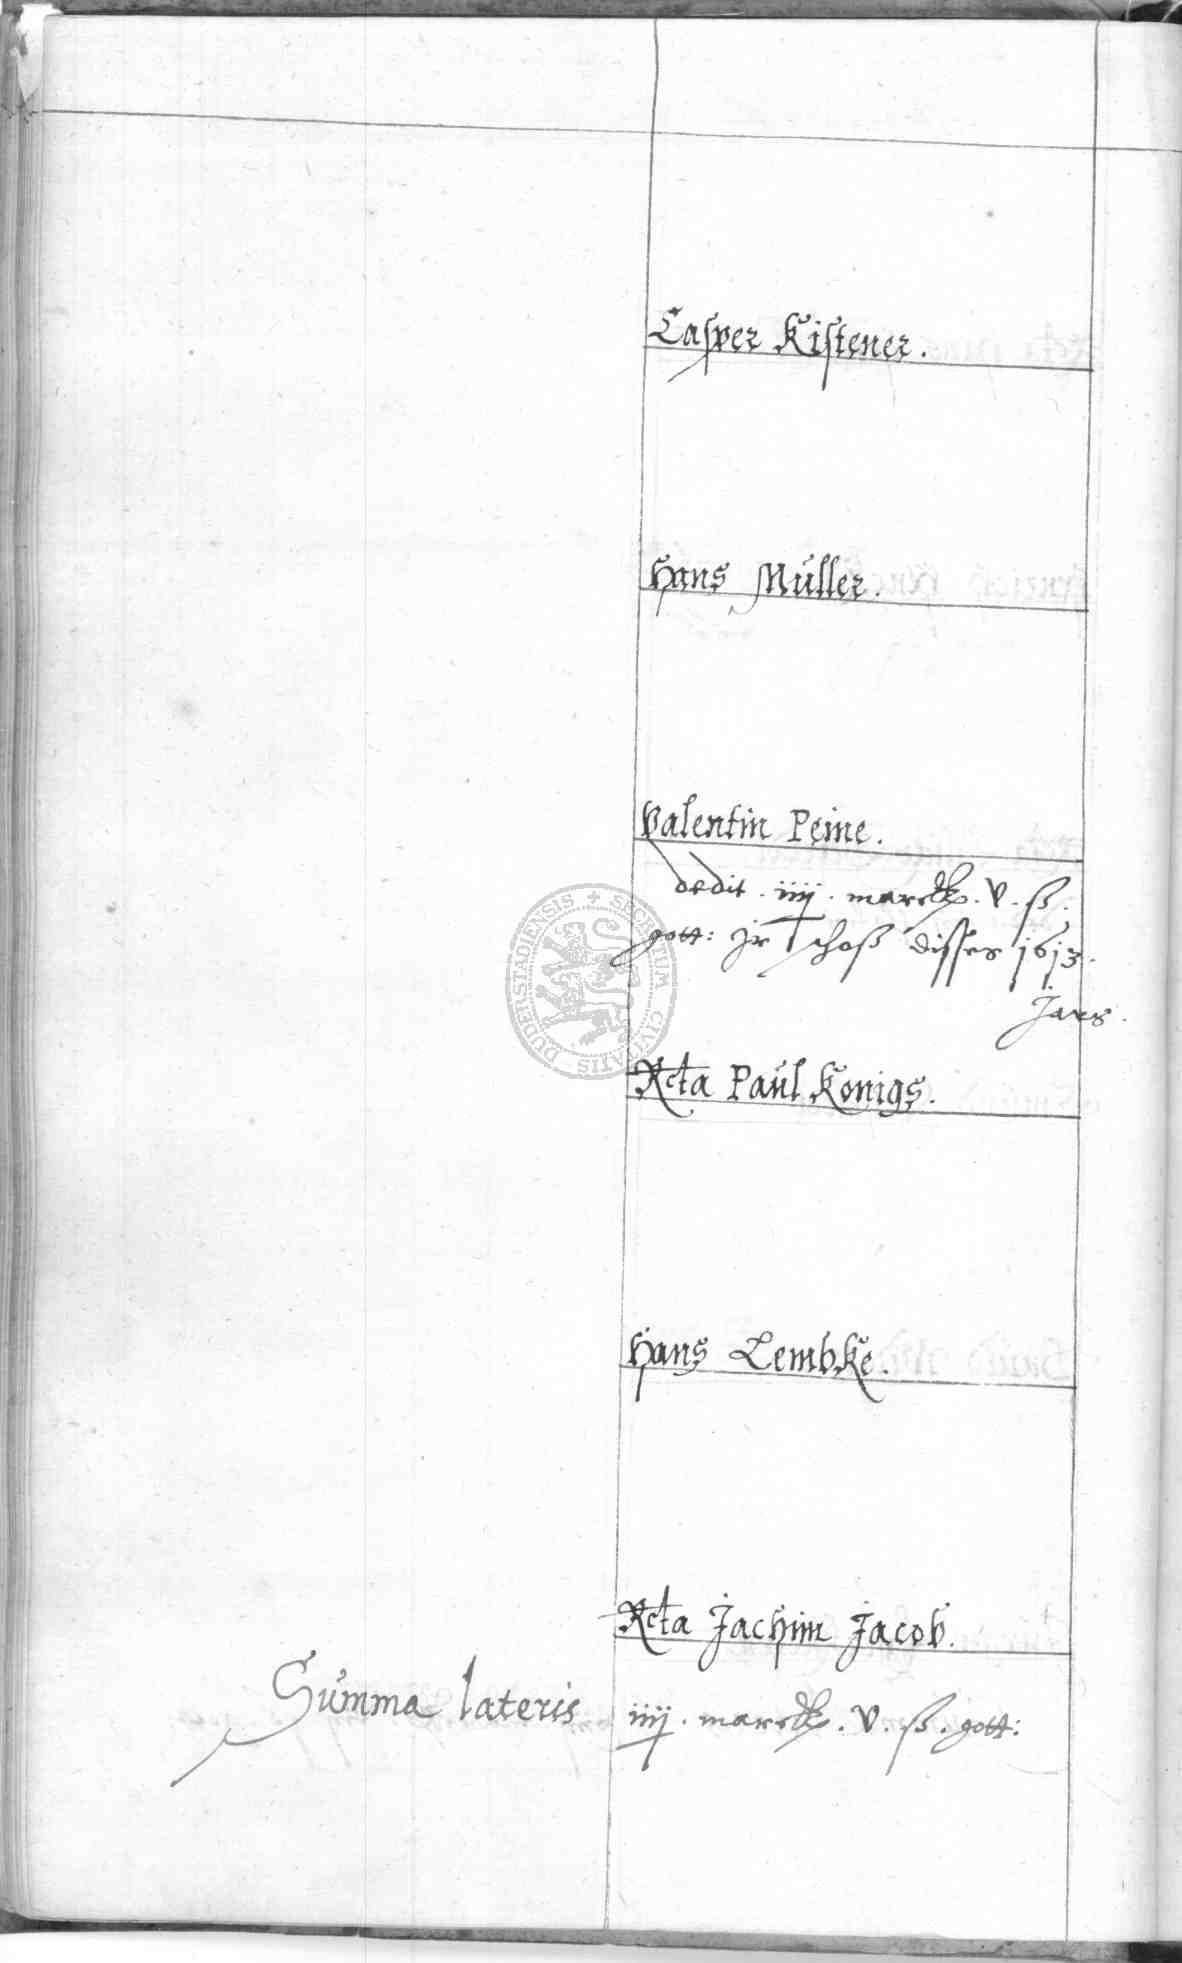 Casper Kistener.
Hans Müller.
Valentin Peine.
dedit . iiij . marck . v . ß .
gott: Jr schoß disses 1613 .
Jars .
Rcta Paul Konigs.
Hans Lembke.
Rcta Jachim Jacob.
Summa lateris iiij . marck . v . ß . gott:
SECRETUM CIVITATIS DUDERSTADIENSIS